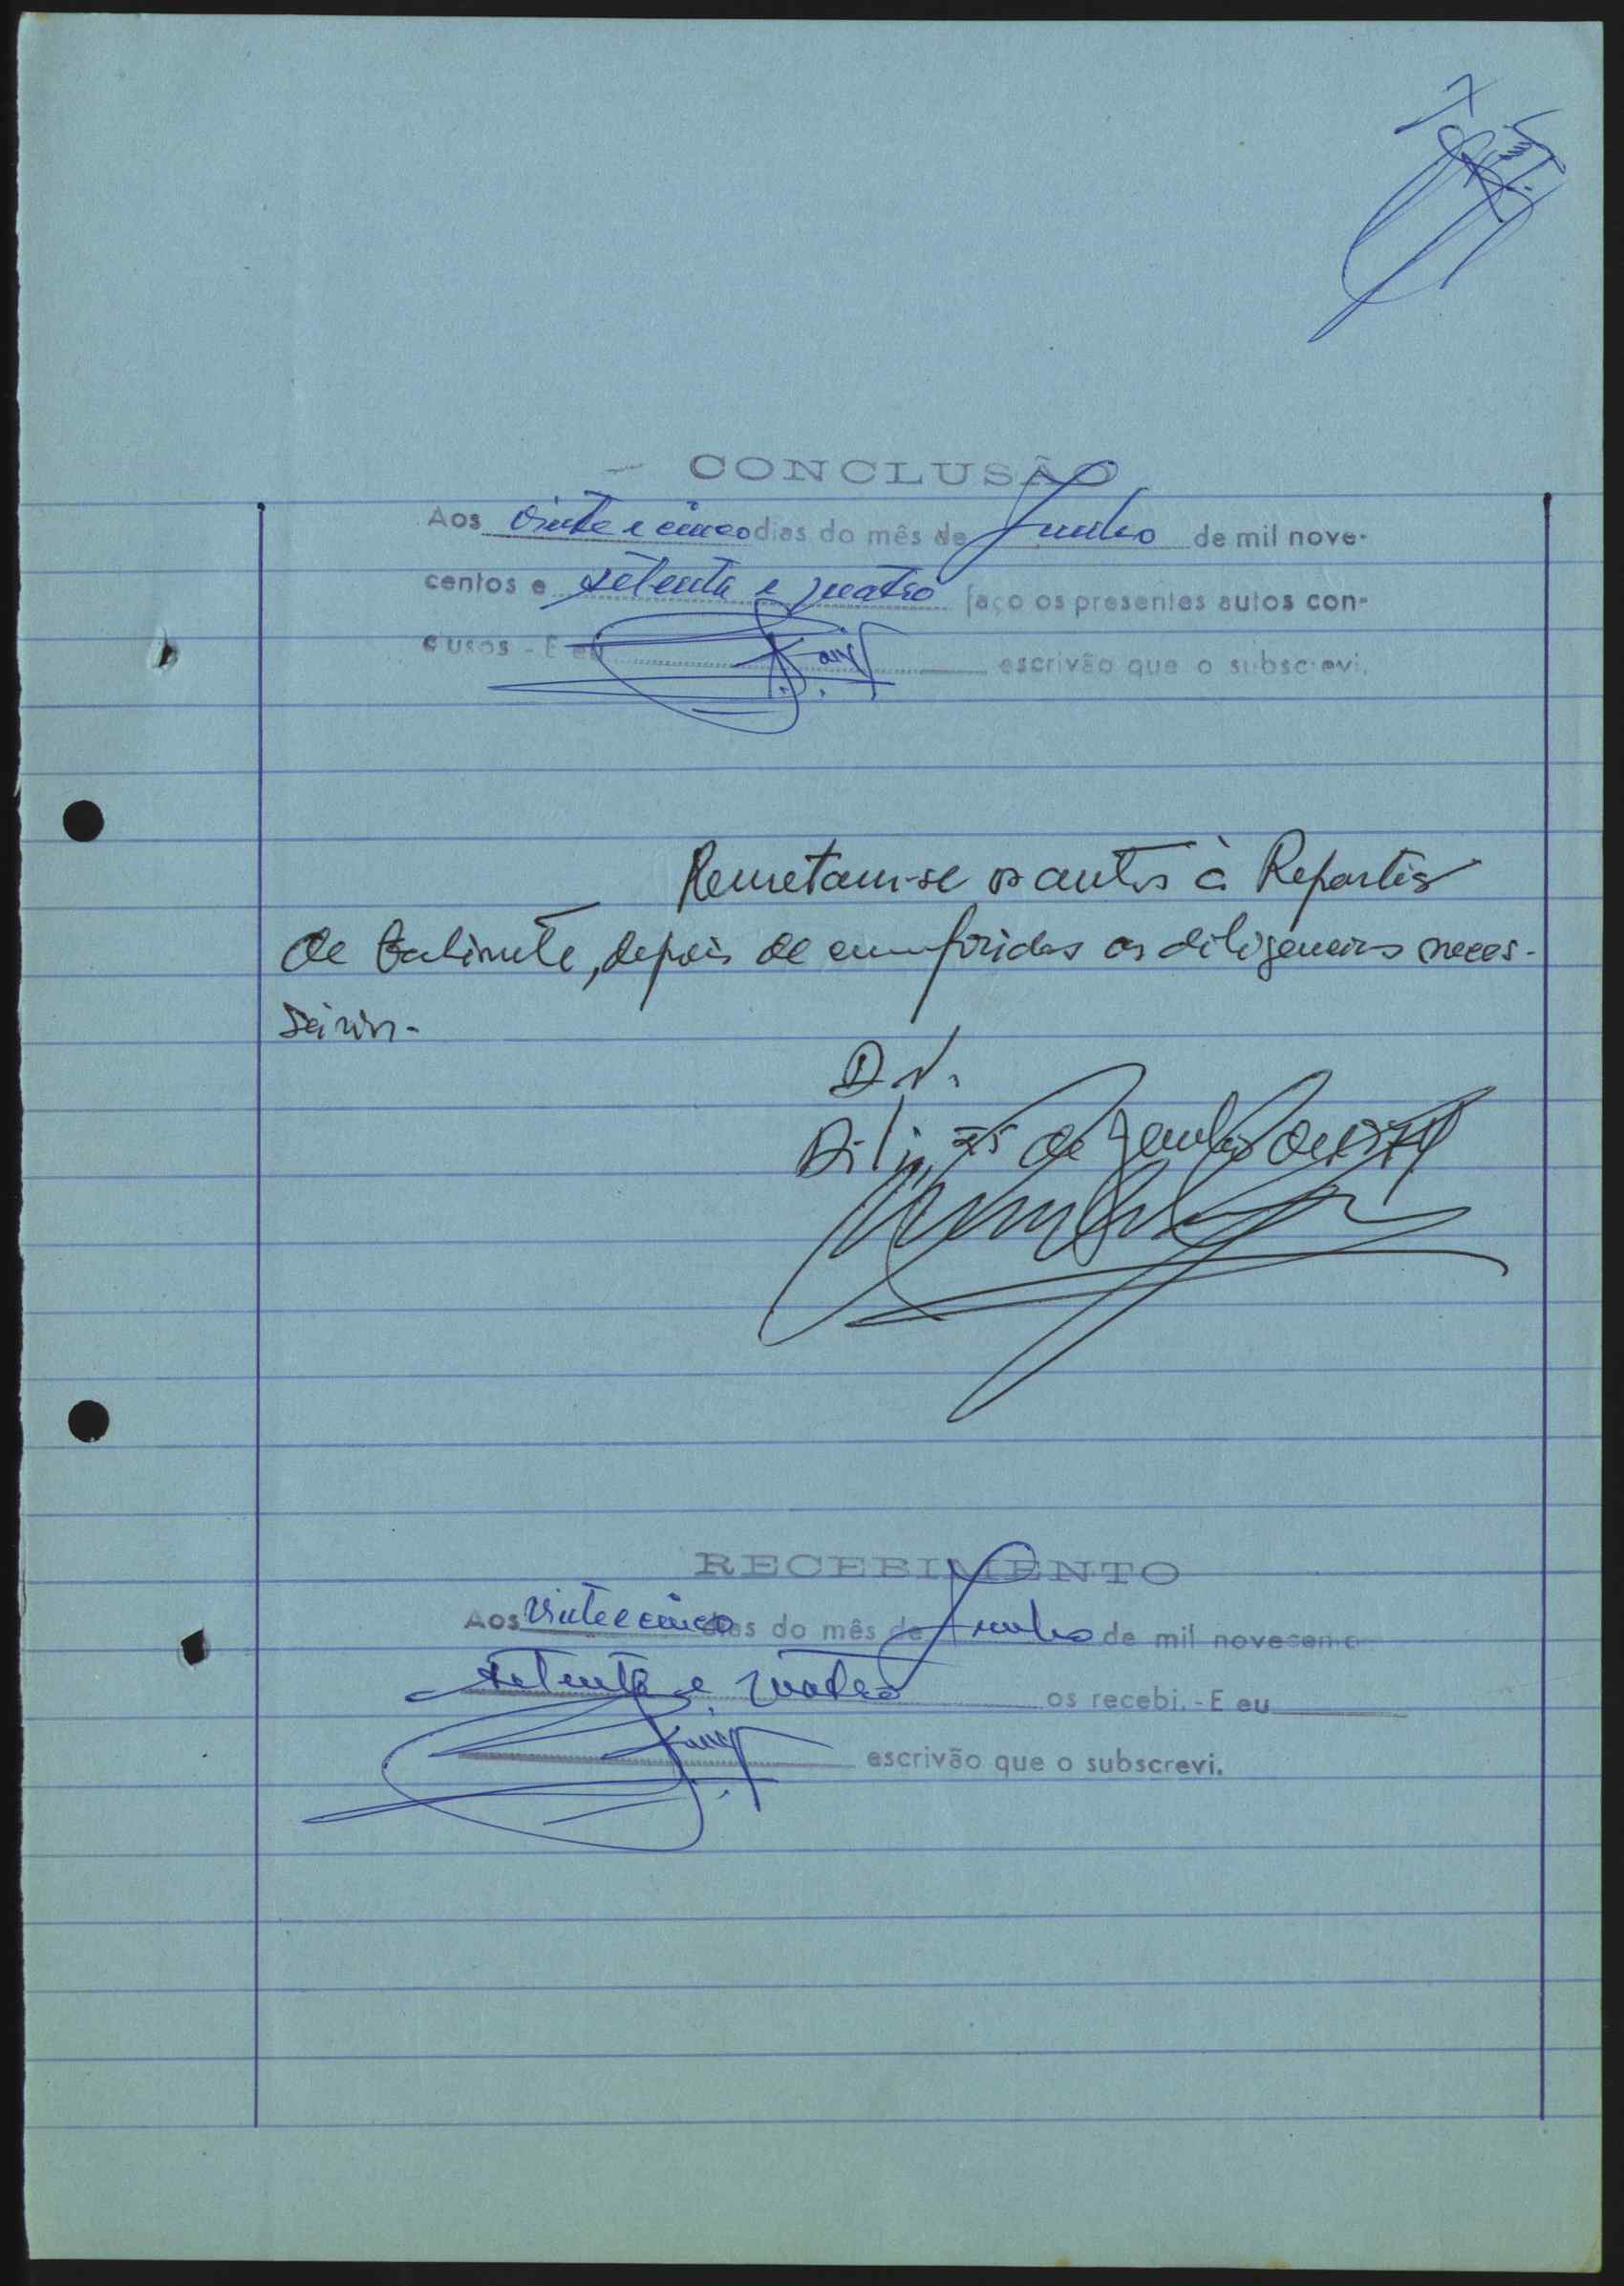 CONCLUSÃO
Aos vinte e cinco dias do mês de Junho de mil nove-
centos e setenta e quatro faço os presentes autos con-
clusos - E eu escrivão que o subscrevi.
Remetam-se os autos à Repartição
de Gabinete, depois de cumpridas as diligências neces-
sárias.
D.N.
Dili, 25 de Junho de 1974
RECEBIMENTO
Aos vinte e cinco dias do mês de Junho de mil novecentos
setenta e quatro os recebi. - E eu
escrivão que o subscrevi.